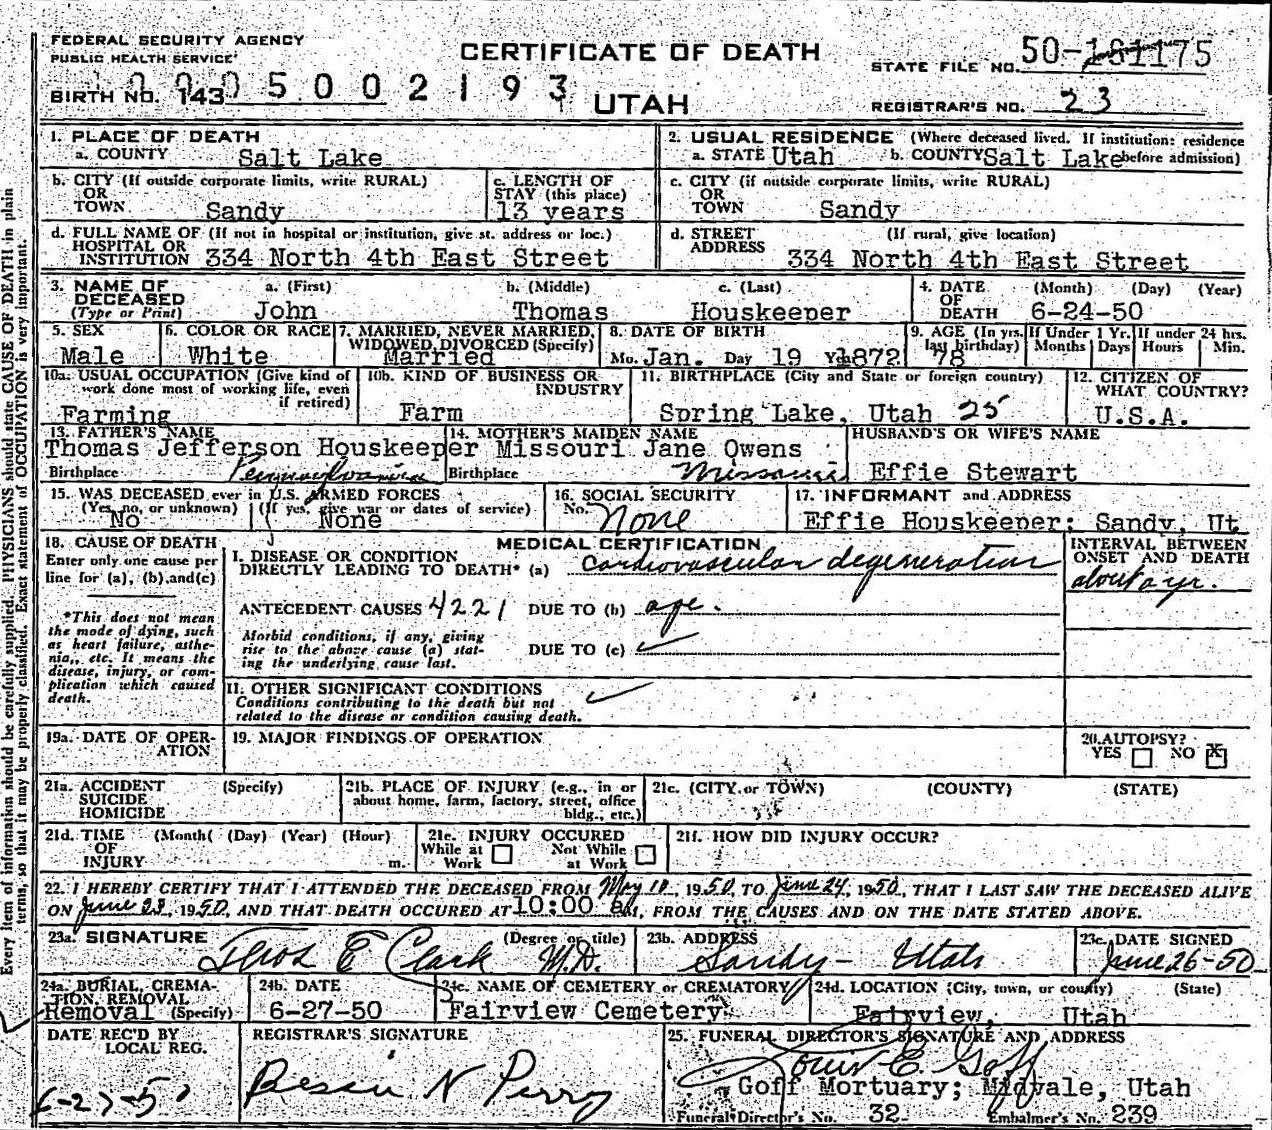 FEDERAL SECURITY AGENCY
PUBLIC HEALTH SERVICE
CERTIFICATE OF DEATH
UTAH
STATE FILE NO. 50-181175
BIRTH NO. 143 5002193
REGISTRAR'S NO. 23
1. PLACE OF DEATH
a. COUNTY Salt Lake
2. USUAL RESIDENCE (Where deceased lived. If institution: residence before admission)
a. STATE Utah b. COUNTY Salt Lake
b. CITY (If outside corporate limits, write RURAL)
OR
TOWN Sandy
c. LENGTH OF
STAY (this place)
13 years
c. CITY (if outside corporate limits, write RURAL)
OR
TOWN Sandy
d. FULL NAME OF (If not in hospital or institution, give st. address or loc.)
HOSPITAL OR
INSTITUTION 334 North 4th East Street
d. STREET (If rural, give location)
ADDRESS 334 North 4th East Street
3. NAME OF DECEASED
(Type or Print)
a. (First) b. (Middle) c. (Last)
John Thomas Houskeeper
4. DATE OF DEATH (Month) (Day) (Year)
6-24-50
5. SEX
Male
6. COLOR OR RACE
White
7. MARRIED, NEVER MARRIED,
WIDOWED, DIVORCED (Specify)
Married
8. DATE OF BIRTH
Mo. Jan. Day 19 Yr. 1872
9. AGE (In yrs. last birthday)
78
If Under 1 Yr.
Months Days
If under 24 hrs.
Hours Min.
10a. USUAL OCCUPATION (Give kind of
work done most of working life, even
if retired)
Farming
10b. KIND OF BUSINESS OR
INDUSTRY
Farm
11. BIRTHPLACE (City and State or foreign country)
Spring Lake, Utah 25
12. CITIZEN OF
WHAT COUNTRY?
U.S.A.
13. FATHER'S NAME
Thomas Jefferson Houskeeper
Birthplace Pennsylvania
14. MOTHER'S MAIDEN NAME
Missouri Jane Owens
Birthplace Missouri
HUSBAND'S OR WIFE'S NAME
Effie Stewart
15. WAS DECEASED ever in U.S. ARMED FORCES
(Yes, no, or unknown) (If yes, give war or dates of service)
No None
16. SOCIAL SECURITY
No. None
17. INFORMANT and ADDRESS
Effie Houskeeper; Sandy, Ut
18. CAUSE OF DEATH
Enter only one cause per
line for (a), (b), and (c)
*This does not mean
the mode of dying, such
as heart failure, asthe-
nia, etc. It means the
disease, injury, or com-
plication which caused
death.
MEDICAL CERTIFICATION
I. DISEASE OR CONDITION
DIRECTLY LEADING TO DEATH* (a) cardiovascular degeneration
ANTECEDENT CAUSES 4221 DUE TO (b) age.
Morbid conditions, if any, giving
rise to the above cause (a) stat-
ing the underlying cause last.
DUE TO (c)
II. OTHER SIGNIFICANT CONDITIONS
Conditions contributing to the death but not
related to the disease or condition causing death.
INTERVAL BETWEEN
ONSET AND DEATH
about a yr.
19a. DATE OF OPER-
ATION
19. MAJOR FINDINGS OF OPERATION
20. AUTOPSY?
YES NO X
21a. ACCIDENT (Specify)
SUICIDE
HOMICIDE
21b. PLACE OF INJURY (e.g., in or
about home, farm, factory, street, office
bldg., etc.)
21c. (CITY or TOWN) (COUNTY) (STATE)
21d. TIME (Month) (Day) (Year) (Hour)
OF
INJURY m.
21e. INJURY OCCURED
While at Work Not While at Work
21f. HOW DID INJURY OCCUR?
22. I HEREBY CERTIFY THAT I ATTENDED THE DECEASED FROM May 10, 1950, TO June 24, 1950, THAT I LAST SAW THE DECEASED ALIVE
ON June 23, 1950, AND THAT DEATH OCCURED AT 10:00 M, FROM THE CAUSES AND ON THE DATE STATED ABOVE.
23a. SIGNATURE (Degree or title)
Thos E Clark M.D.
23b. ADDRESS
Sandy - Utah
23c. DATE SIGNED
June 26-50
24a. BURIAL, CREMA-
TION, REMOVAL
Removal (Specify)
24b. DATE
6-27-50
24c. NAME OF CEMETERY or CREMATORY
Fairview Cemetery
24d. LOCATION (City, town, or county) (State)
Fairview, Utah
DATE REC'D BY
LOCAL REG.
6-27-50
REGISTRAR'S SIGNATURE
Bessie N Perry
25. FUNERAL DIRECTOR'S SIGNATURE AND ADDRESS
Louis E. Goff
Goff Mortuary; Midvale, Utah
Funeral Director's No. 32 Embalmer's No. 239
Every item of information should be carefully supplied. PHYSICIANS should state CAUSE OF DEATH in plain
terms, so that it may be properly classified. Exact statement of OCCUPATION is very important.